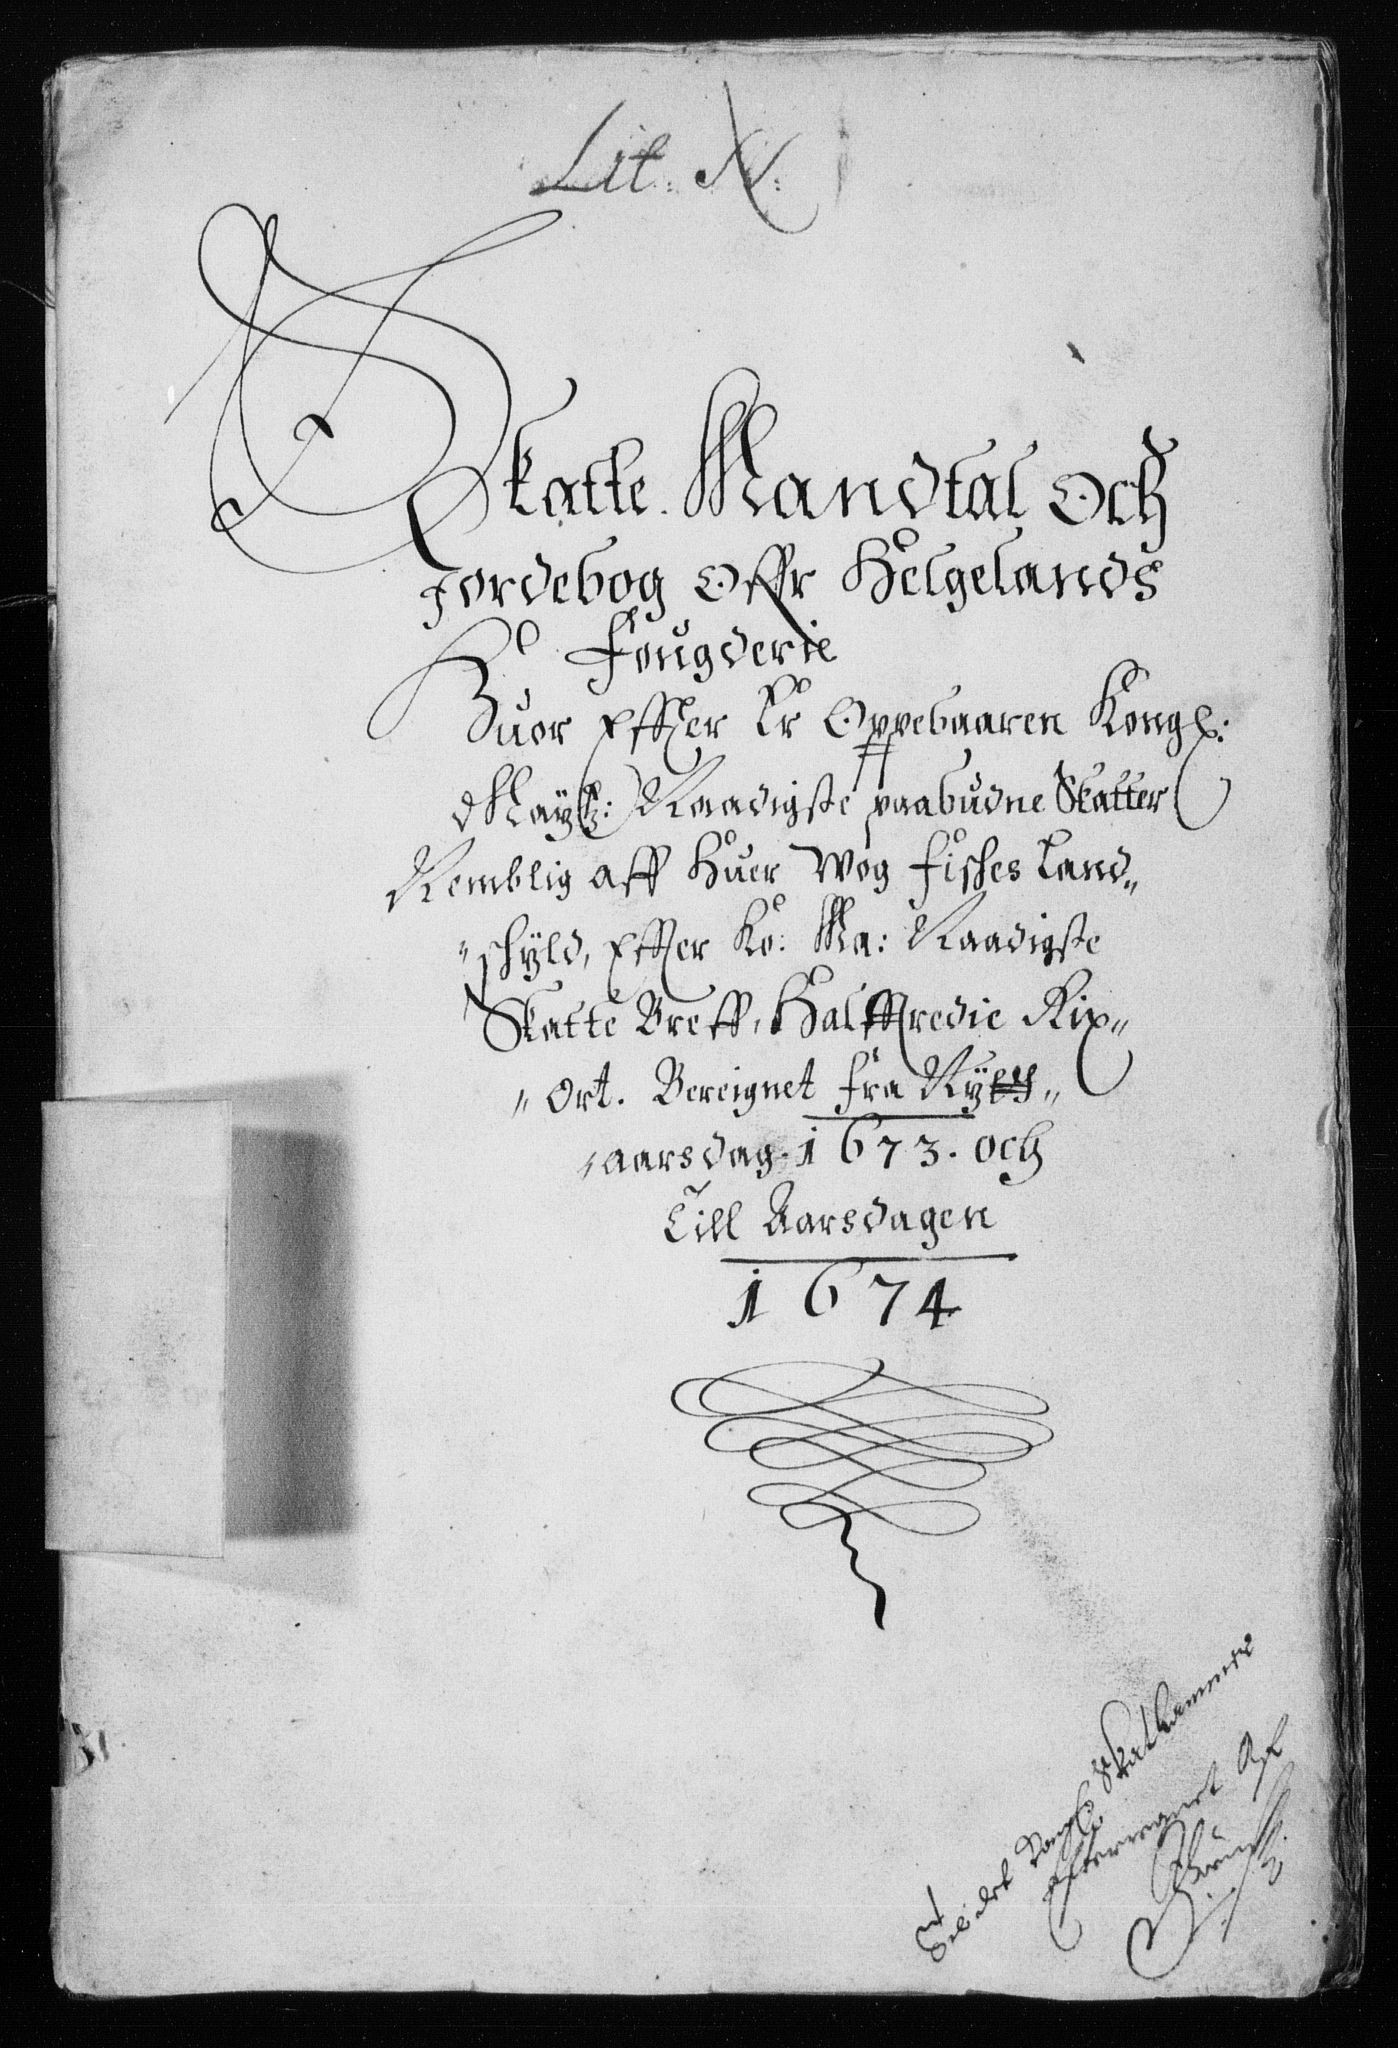 Lit. N:
Skatte. Mandtal Och
Jordebog Offr Helgelands
Fougderie
Huor Effter Er Oppebaaren Kongl:
Mayts: Naadigste paabudne Skatter
Nemblig aff Huer Wog fisches Land„
„schyld, Effter Ko: Ma: Naadigste
Skatte Breff, Halfftredie Rix„
„Ort. Bereignet fra Ny„
„aarsdag. 1673. och
Till Aarsdagen
1674
Till det Kongl: Skatkammer
Efterreignet Aff